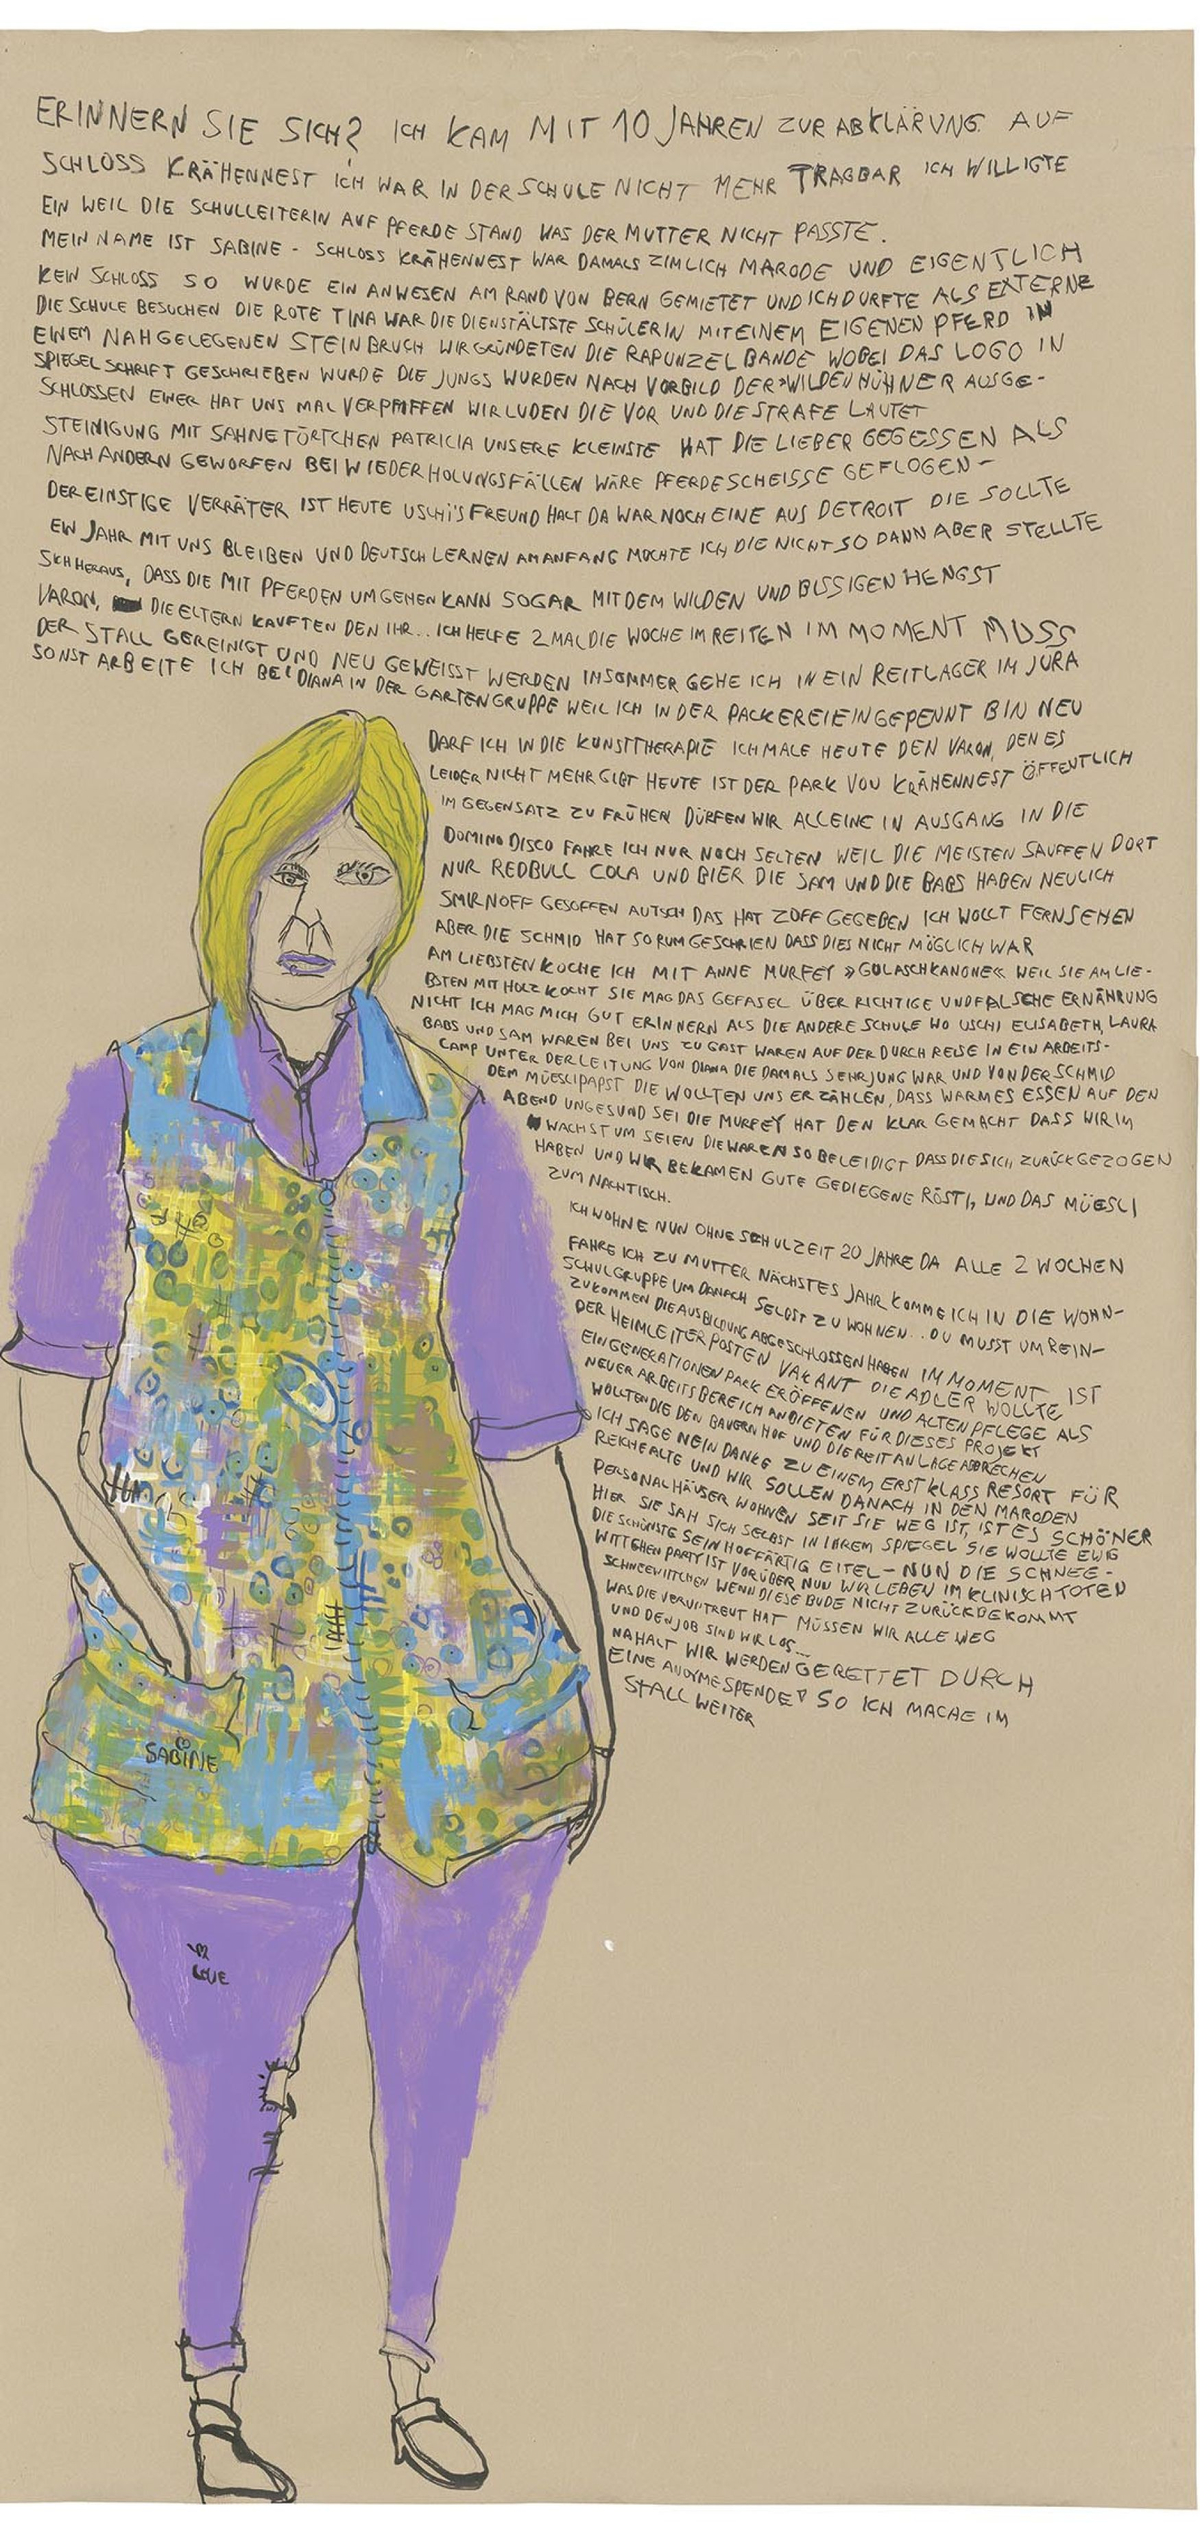 ERINNERN SIE SICH? ICH KAM MIT 10 JAHREN ZUR ABKLÄRUNG AUF
SCHLOSS KRÄHENNEST ICH WAR IN DER SCHULE NICHT MEHR TRAGBAR ICH WILLIGTE
EIN WEIL DIE SCHULLEITERIN AUF PFERDE STAND WAS DER MUTTER NICHT PASSTE.
MEIN NAME IST SABINE - SCHLOSS KRÄHENNEST WAR DAMALS ZIMLICH MARODE UND EIGENTLICH
KEIN SCHLOSS SO WURDE EIN ANWESEN AM RAND VON BERN GEMIETET UND ICH DURFTE ALS EXTERNE
DIE SCHULE BESUCHEN DIE ROTE TINA WAR DIE DIENSTÄLTSTE SCHÜLERIN MIT EINEM EIGENEN PFERD IN
EINEM NAHGELEGENEN STEINBRUCH WIR GRÜNDETEN DIE RAPUNZEL BANDE WOBEI DAS LOGO IN
SPIEGELSCHRIFT GESCHRIEBEN WURDE DIE JUNGS WURDEN NACH VORBILD DER »WILDEN HÜHNER AUSGE-
SCHLOSSEN EINER HAT UNS MAL VERPFIFFEN WIR LUDEN DIE VOR UND DIE STRAFE LAUTET
STEINIGUNG MIT SAHNETÖRTCHEN PATRICIA UNSERE KLEINSTE HAT DIE LIEBER GEGESSEN ALS
NACH ANDERN GEWORFEN BEI WIEDERHOLUNGSFÄLLEN WÄRE PFERDESCHEISSE GEFLOGEN -
DER EINSTIGE VERRÄTER IST HEUTE USCHI'S FREUND HALT DA WAR NOCH EINE AUS DETROIT DIE SOLLTE
EIN JAHR MIT UNS BLEIBEN UND DEUTSCH LERNEN AM ANFANG MOCHTE ICH DIE NICHT SO DANN ABER STELLTE
SICH HERAUS, DASS DIE MIT PFERDEN UMGEHEN KANN SOGAR MIT DEM WILDEN UND BISSIGEN HENGST
VARON, DIE ELTERN KAUFTEN DEN IHR.. ICH HELFE 2 MAL DIE WOCHE IM REITEN IM MOMENT MUSS
DER STALL GEREINIGT UND NEU GEWEISST WERDEN IM SOMMER GEHE ICH IN EIN REITLAGER IM JURA
SONST ARBEITE ICH BEI DIANA IN DER GARTENGRUPPE WEIL ICH IN DER PACKEREI EINGEPENNT BIN NEU
DARF ICH IN DIE KUNSTTHERAPIE ICH MALE HEUTE DEN VARON, DEN ES
LEIDER NICHT MEHR GIBT HEUTE IST DER PARK VON KRÄHENNEST ÖFFENTLICH
IM GEGENSATZ ZU FRÜHER DÜRFEN WIR ALLEINE IN AUSGANG IN DIE
DOMINO DISCO FAHRE ICH NUR NOCH SELTEN WEIL DIE MEISTEN SAUFFEN DORT
NUR REDBULL COLA UND BIER DIE SAM UND DIE BABS HABEN NEULICH
SMIRNOFF GESOFFEN AUTSCH DAS HAT ZOFF GEGEBEN ICH WOLLT FERNSEHEN
ABER DIE SCHMID HAT SO RUM GESCHRIEN DASS DIES NICHT MÖGLICH WAR
AM LIEBSTEN KOCHE ICH MIT ANNE MURFEY »GULASCHKANONE« WEIL SIE AM LIE-
BSTEN MIT HOLZ KOCHT SIE MAG DAS GEFASEL ÜBER RICHTIGE UND FALSCHE ERNÄHRUNG
NICHT ICH MAG MICH GUT ERINNERN ALS DIE ANDERE SCHULE WO USCHI ELISABETH, LAURA
BABS UND SAM WAREN BEI UNS ZU GAST WAREN AUF DER DURCHREISE IN EIN ARBEITS-
CAMP UNTER DER LEITUNG VON DIANA DIE DAMALS SEHR JUNG WAR UND VON DER SCHMID
DEM MÜESLIPAPST DIE WOLLTEN UNS ERZÄHLEN, DASS WARMES ESSEN AUF DEN
ABEND UNGESUND SEI DIE MURFEY HAT DEN KLAR GEMACHT DASS WIR IM
WACHSTUM SEIEN DIE WAREN SO BELEIDIGT DASS DIE SICH ZURÜCKGEZOGEN
HABEN UND WIR BEKAMEN GUTE GEDIEGENE RÖSTI, UND DAS MÜESLI
ZUM NACHTISCH.
ICH WOHNE NUN OHNE SCHULZEIT 20 JAHRE DA ALLE 2 WOCHEN
FAHRE ICH ZU MUTTER NÄCHSTES JAHR KOMME ICH IN DIE WOHN-
SCHULGRUPPE UM DANACH SELBST ZU WOHNEN... DU MUSST UM REIN-
ZUKOMMEN DIE AUSBILDUNG ABGESCHLOSSEN HABEN IM MOMENT IST
DER HEIMLEITERPOSTEN VAKANT DIE ADLER WOLLTE
EIN GENERATIONENPARK ERÖFFENEN UND ALTENPFLEGE ALS
NEUER ARBEITSBEREICH ANBIETEN FÜR DIESES PROJEKT
WOLLTEN DIE DEN BAUERNHOF UND DIE REITANLAGE ABBRECHEN
ICH SAGE NEIN DANKE ZU EINEM ERSTKLASS RESORT FÜR
REICHE ALTE UND WIR SOLLEN DANACH IN DEN MARODEN
PERSONALHÄUSER WOHNEN SEIT SIE WEG IST, IST ES SCHÖNER
HIER SIE SAH SICH SELBST IN IHREM SPIEGEL SIE WOLLTE EWIG
DIE SCHÖNSTE SEIN HOFFÄRTIG EITEL - NUN DIE SCHNEE-
WITTCHEN PARTY IST VORÜBER NUN WIR LEBEN IM KLINISCH TOTEN
SCHNEEWITTCHEN WENN DIESE BUDE NICHT ZURÜCKBEKOMMT
WAS DIE VERUNTREUT HAT MÜSSEN WIR ALLE WEG
UND DEN JOB SIND WIR LOS...
NAHALT WIR WERDEN GERETTET DURCH
EINE ANOYMESPENDE! SO ICH MACHE IM
STALL WEITER
SABINE
LOVE